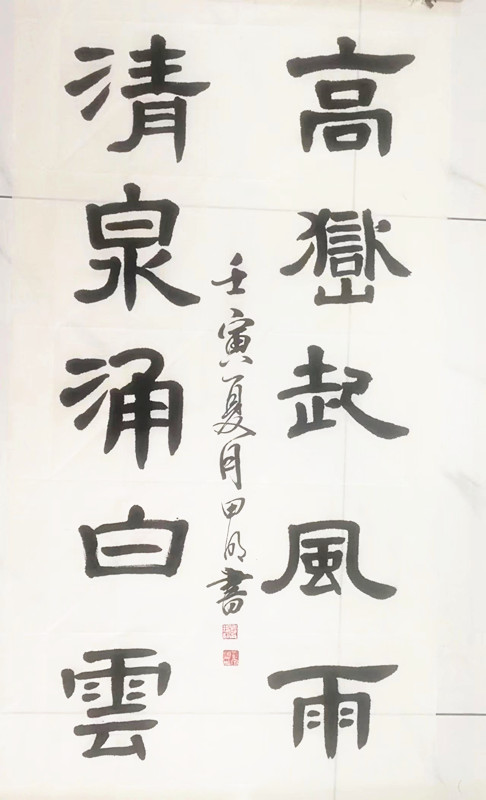 高嶽起風雨
清泉涌白雲
壬寅夏月甲明書